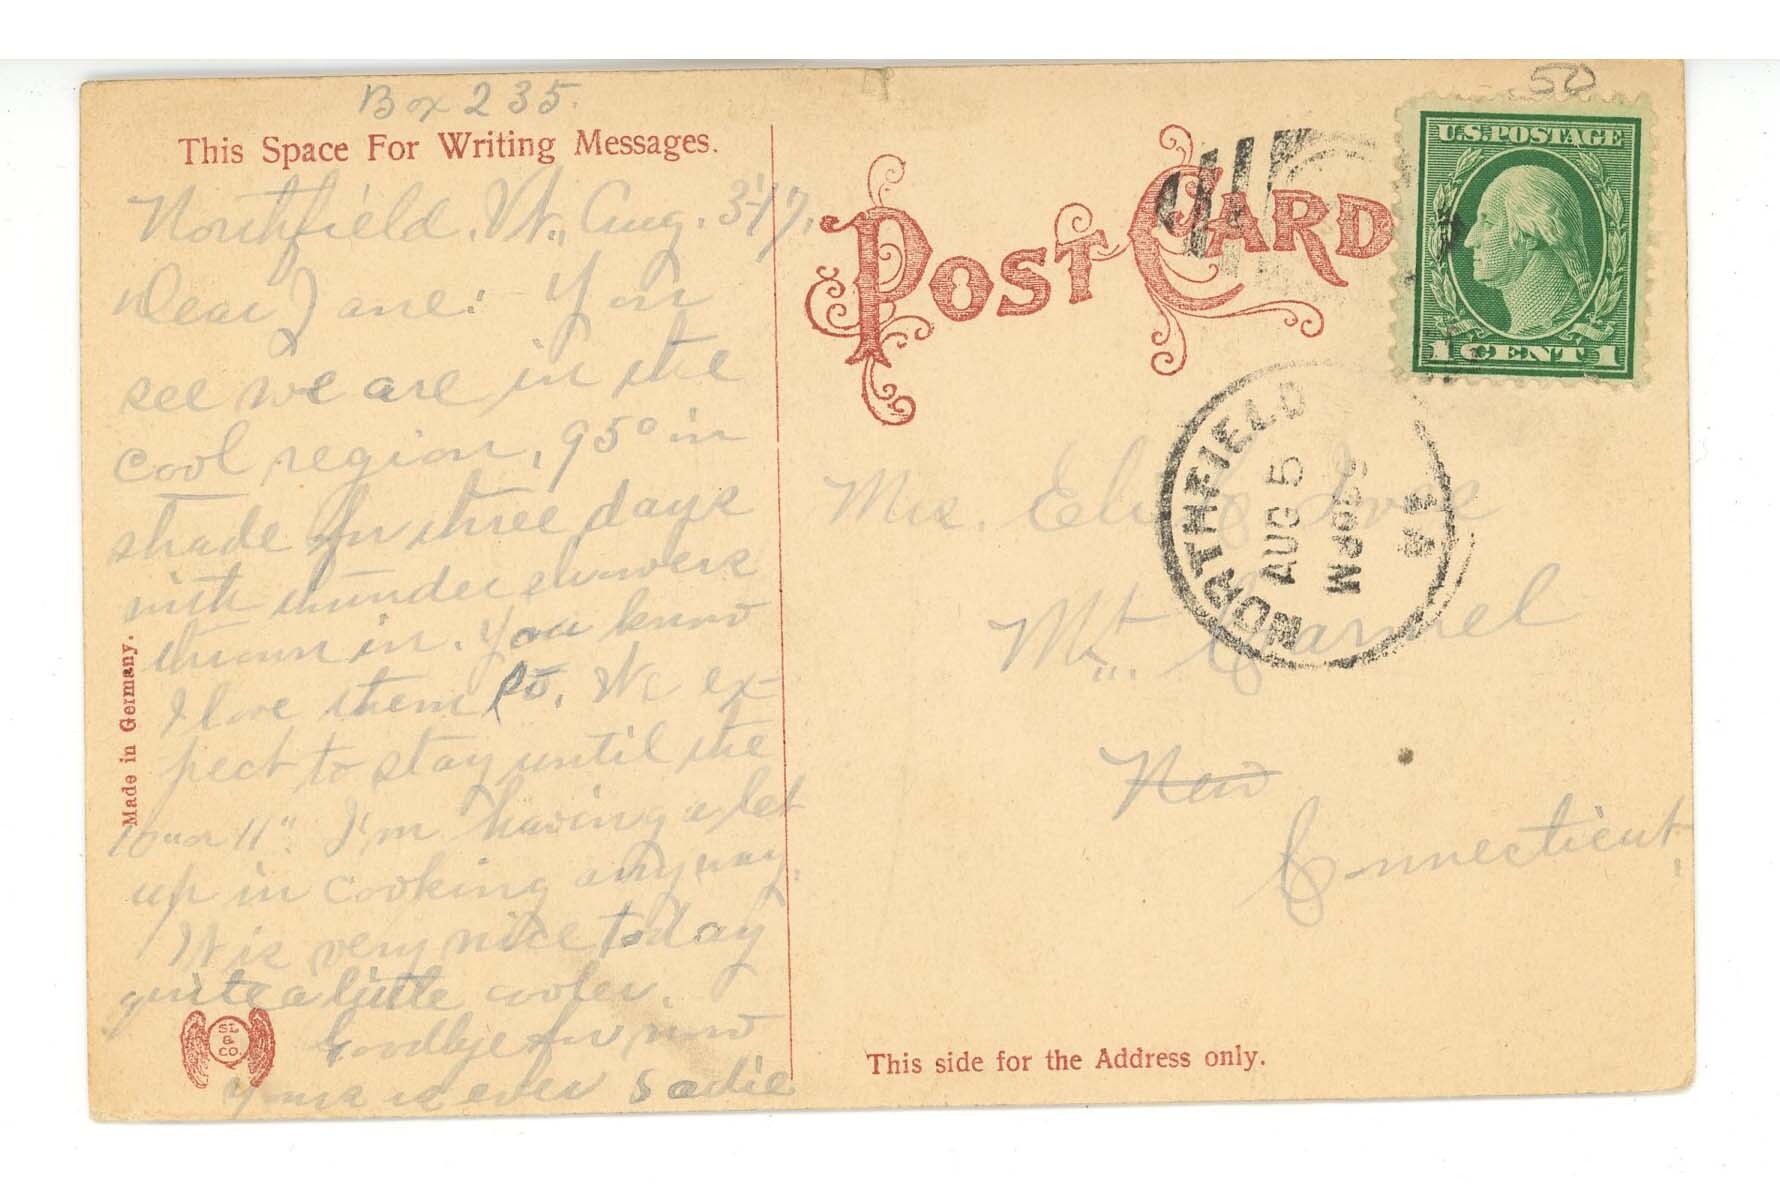 Box 235.
This Space For Writing Messages.
Northfield, Vt., Aug. 3-17,
Dear Jane: You
see we are in the
cool region, 95° in
shade for three days
with thunder showers
thrown in. You know
I love them so. We ex-
pect to stay until the
10" or 11" I'm having a let
up in cooking any way.
It is very nice today
quite a little cooler.
Goodbye for now
yours as ever Sadie
Made in Germany.
SL
&
CO.
POST CARD
50
U.S. POSTAGE
1 CENT 1
NORTHFIELD
AUG 5
PM
Mrs. Ives
Mt. Carmel
New
Connecticut.
This side for the Address only.